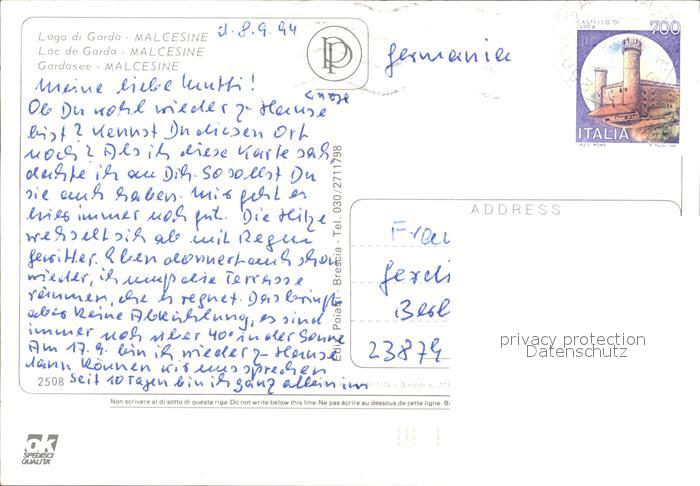 Lago di Garda - MALCESINE
Lac de Garda - MALCESINE
Gardasee - MALCESINE
d. 8.9.94
Germania
CASTELLO DI
700
ITALIA
Meine liebe Mutti!
Ob Du wohl wieder z. Hause
bist? Kennst Du diesen Ort
noch? Als ich diese Karte sah
dachte ich an Dich. So sollst Du
sie auch haben. Mir geht es
hier immer noch gut. Die Hitze
wechselt sich ab mit Regen
gewitter. Eben donnert auch schon
wieder, ich muß die Terrasse
räumen, ehe es regnet. Das bringt
aber keine Abkühlung, es sind
immer noch über 40° in der Sonne
Am 17.9. bin ich wieder z. Hause
dann können wir uns sprechen
Seit 10 Tagen bin ich ganz allein im
2508
Poiatti - Brescia - Tel. 030/2711798
ADDRESS
Frau
Gerd
Berl
23879
privacy protection
Datenschutz
Non scrivere al di sotto di questa riga-Do not write below this line-Ne pas écrire au dessous de cette ligne-
ok
SPEDISCI
QUALITÀ